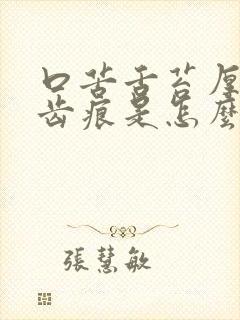 口苦舌苔厚
齿痕是怎麼
張慧敏